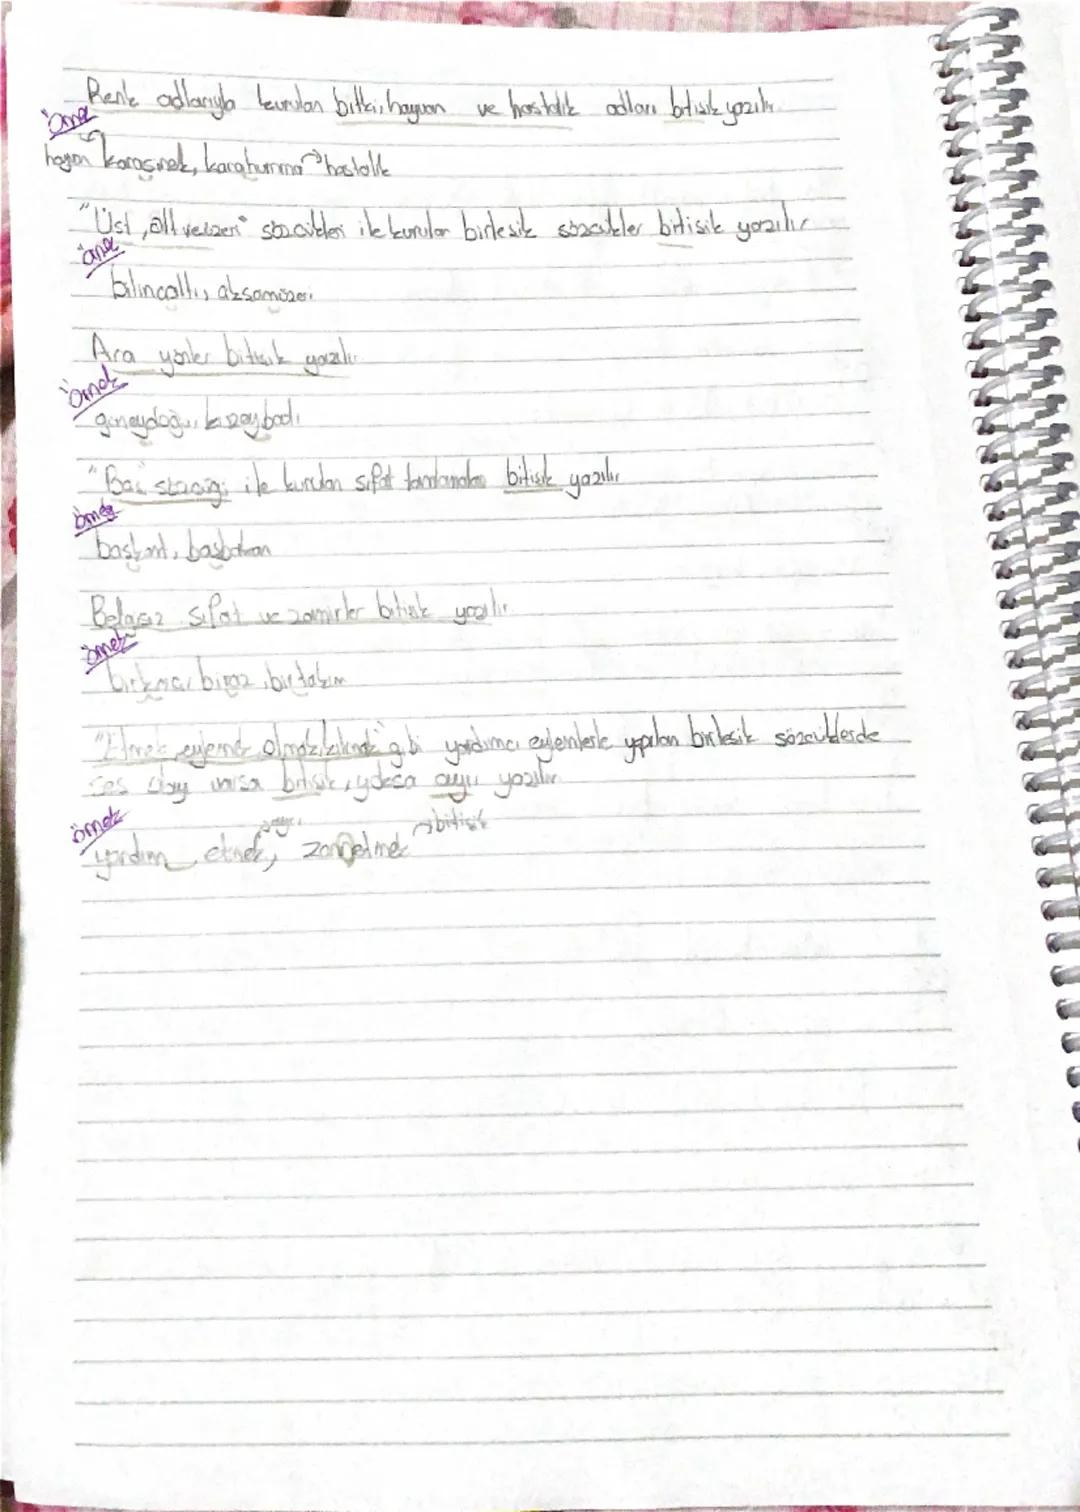 Renk adlarıyla kurulan bitki, hayvan ve hastalık adları bitişik yazılır.
Örnek
hayvan karasinek, karahumma → hastalık
"Üst, alt ve üzeri" sözcükleri ile kurulan birleşik sözcükler bitişik yazılır
örnek
bilinçaltı, akşamüzeri
Ara yönler bitişik yazılır.
Örnek
güneydoğu, kuzeybatı
"Baş" sözcüğü ile kurulan sıfat tamlamaları bitişik yazılır
örnek
başkent, başbakan
Belgisiz sıfat ve zamirler bitişik yazılır
örnek
birkaç, biraz, birtakım
"Etmek, eylemek, olmak, kılmak" gibi yardımcı eylemlerle yapılan birleşik sözcüklerde
ses olayı varsa bitişik, yoksa ayrı yazılır
örnek ayrı → bitişik
yardım etmek, zannetmek